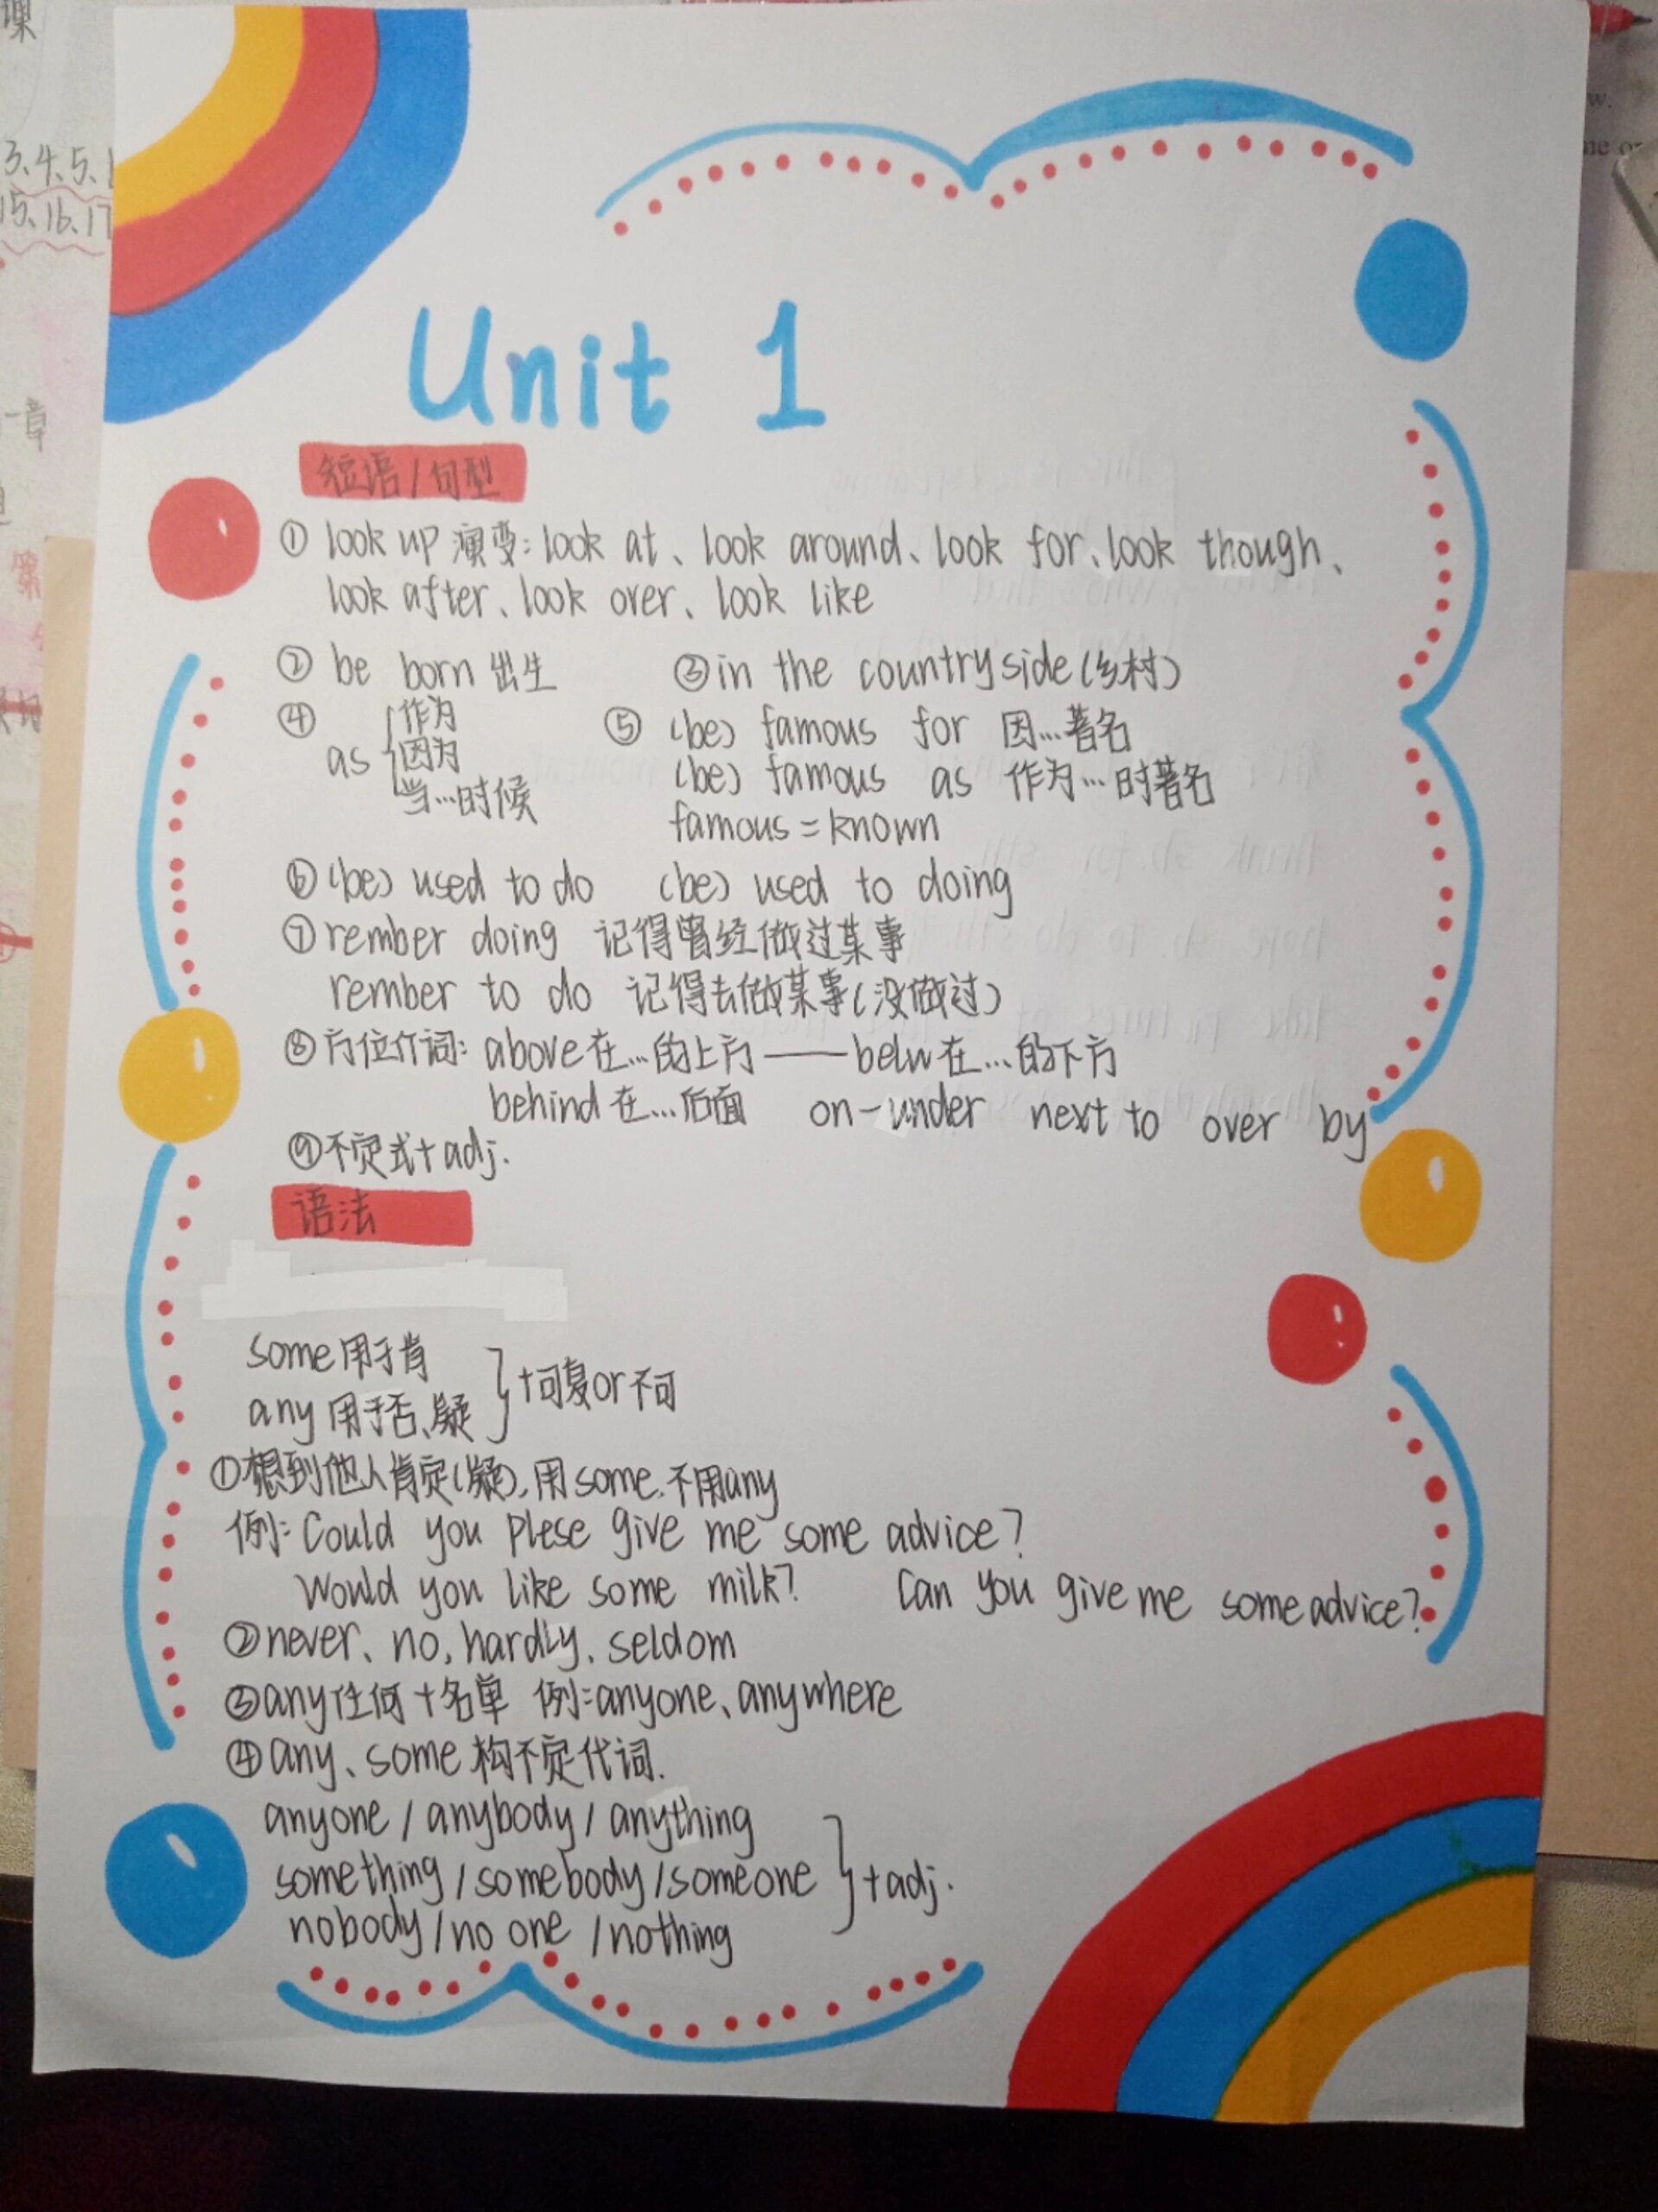 Unit 1
短语/句型
① look up 演变: look at、look around、look for、look though、
look after、look over、look like
② be born 出生 ③ in the countryside(乡村)
④ as {作为
因为
当...时候
⑤ (be) famous for 因...著名
(be) famous as 作为...时著名
famous = known
⑥ (be) used to do (be) used to doing
⑦ rember doing 记得曾经做过某事
rember to do 记得去做某事(没做过)
⑧ 方位介词: above 在...的上方 —— belw 在...的下方
behind 在...后面 on-under next to over by
⑨ 不定式+adj.
语法
some 用于肯
any 用于否、疑 } +可复or不可
① 想到他人肯定(疑),用some.不用any
例: Could you plese give me some advice?
Would you like some milk? Can you give me some advice?
② never、no, hardly, seldom
③ any任何+名单 例: anyone、anywhere
④ any、some 构不定代词.
anyone / anybody / anything
something / somebody / someone } + adj.
nobody / no one / nothing
课
3.4.5.
15.16.17
一章
第